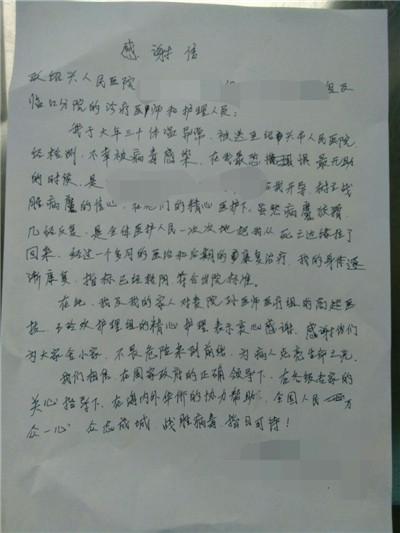 感谢信
致绍兴人民医院
临口分院的诊疗医师和护理人员：
我于大年三十体温异常，被送至绍兴市人民医院
经检测，不幸被病毒感染，在我最恐 最无助
的时候，是 给我开导，树立战
胜病魔的信心，在他们的精心医护下，虽然病魔
几经反复，是全体医护人员一次次地把我从死亡边缘拉了
回来，经过一个多月的医治和后期的康复治疗，我的身体逐
渐康复，指标已经转阴符合出院标准。
在此，我及我的家人对贵院 医师医疗组的高超医
技， 护理组的精心护理表示衷心感谢，感谢他们
为大家舍小家，不畏危险来到前线，为病人点亮生命之光。
我们相信，在国家政府的正确领导下，在各级专家的
关心指导下，在海内外华侨的协力帮助，全国人民万
众一心，众志成城，战胜病毒，指日可待！